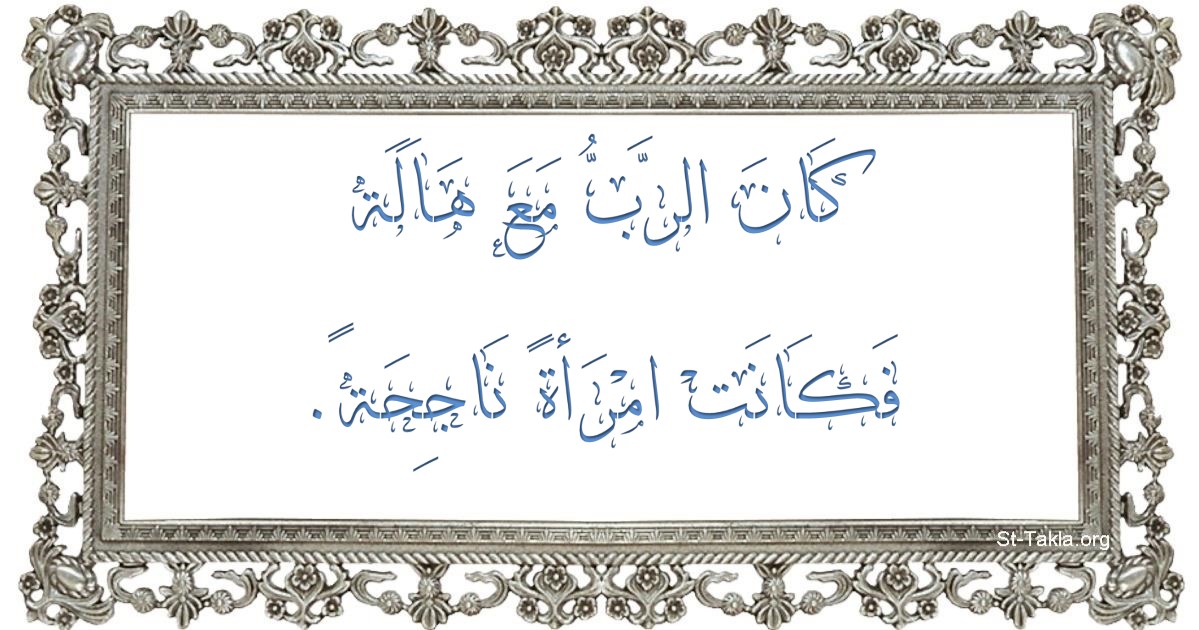 كَانَ الرَّبُّ مَعَ هَالَةً
فَكَانَت امْرَأةً نَاجِحَةً.
St-Takla.org